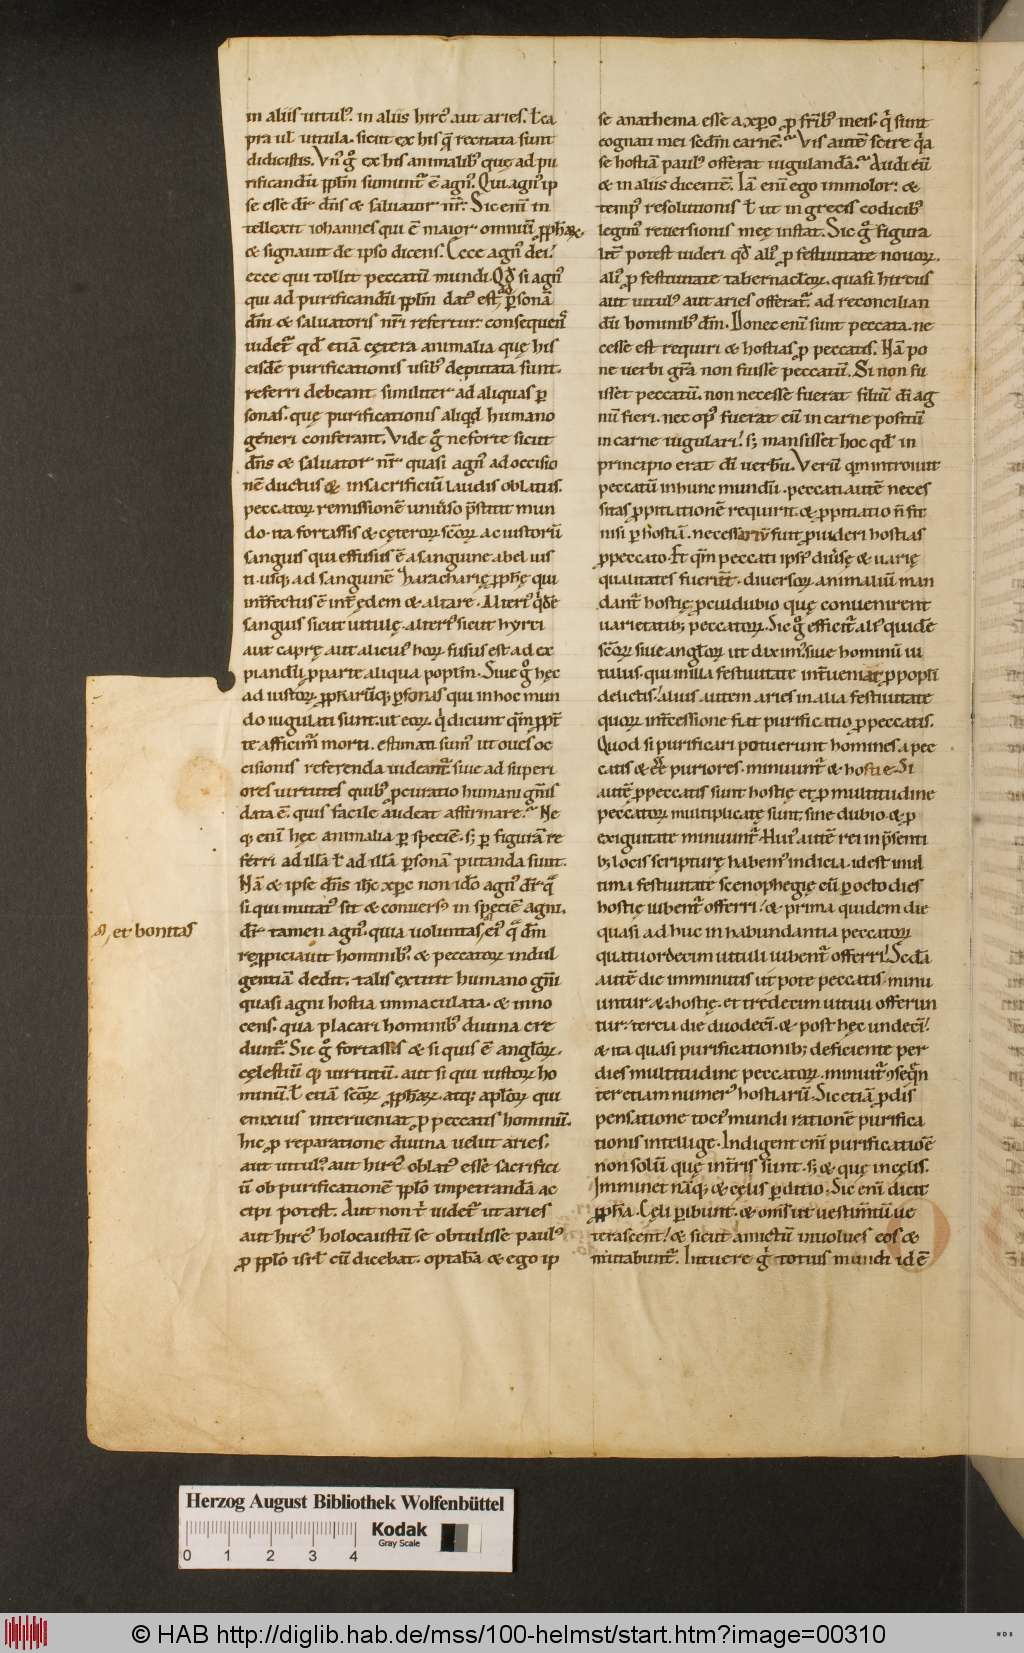 in aliis uitul᷒. in aliis hirc᷒ aut aries. ł ca
pra uł uitula. sicut ex his q̄ recitata sunt
didicistis. Vn᷒ gͦ ex his animalib᷒ quę ad pu
rificandū ꝓplm̄ sumunt᷑ ē agn᷒. Qui agn᷒ ip
se esse dr̄ dn̄s & saluator nr̄. Sic enī in
tellexit iohannes qui ē maior omniū ꝓphaꝝ.
& signauit de ipso dicens. Ecce agn᷒ dei.
ecce qui tollit peccatū mundi. Qđ si agn᷒
qui ad purificandū ꝓplm̄ dat᷒ est, ad ꝑsonā
dn̄i & saluatoris nr̄i refertur. consequen᷒
uidet᷑ qđ etiā cętera animalia quę his
eisdē purificationis usib᷒ deputata sunt.
referri debeant similiter ad aliquas ꝑ
sonas. quę purificationis aliqđ humano
generi conferant. Vide gͦ ne forte sicut
dn̄s & saluator nr̄ quasi agn᷒ ad occisio
nē ductus & in sacrificiū laudis oblatus.
peccatoꝝ remissionē uniūso p̄stitit mun
do. ita fortassis & cęteroꝝ sc̄oꝝ ac iustorū
sanguis qui effusus ē a sanguine abel ius
ti. usq; ad sanguinē zacharię ꝓphę qui
int᷑fectus ē int᷑ ędem & altare. Alteri᷒ qͥdē
sanguis sicut uitulę. alteri᷒ sicut hyrci
aut caprę aut alicui᷒ hoꝝ fusus est ad ex
piandū ꝓ parte aliqua poplm̄. Siue gͦ hęc
ad iustoꝝ ꝓphaꝝūq; ꝑsonas qui in hoc mun
do iugulati sunt. uł eoꝝ qͥ dicunt qm̄ ꝓpt᷑
te afficim᷒ morti. estimati sum᷒ ut oues oc
cisionis referenda uideant᷑ siue ad superi
ores uirtutes quib᷒ ꝓcuratio humani gn̄is
data ē. quis facile audeat affirmare. Ne
q; enī hęc animalia ꝑ speciē. s; ꝑ figurā re
ferri ad illā ł ad illā ꝑsonā putanda sunt.
Nā & ipse dn̄s ih̄c xp̄c non idō agn᷒ dr̄ qͣ
si qui mutat᷒ sit & conuers᷒ in speciē agni.
et bonitas
dr̄ tamen agn᷒. quia uoluntas, ei᷒ qͣ dm̄
reppiciauit hominib᷒. & peccatoꝝ indul
gentiā dedit. talis extitit humano gn̄i
quasi agni hostia immaculata. & inno
cens. qua placari hominib᷒ diuina cre
dunt᷑. Sic gͦ fortassis & si quis ē angloꝝ.
cęlestiū q; uirtutū. aut si qui iustoꝝ ho
minū. ł etiā sc̄oꝝ ꝓphaꝝ. atq; apłoꝝ qui
enixius interueniat ꝓ peccatis hominū.
hic ꝓ reparatione diuina uelut aries.
aut uitul᷒. aut hirc᷒ oblat᷒ esse sacrifici
ū ob purificationē ꝓplo impetrandā ac
cipi potest. Aut non t᷑ uidet᷑ ut aries
aut hirc᷒ holocaustū se obtulisse paul᷒
ꝓ ꝓplo isrł cū dicebat. optabā & ego ip
se anathema esse a xp̄o ꝓ fr̄ib᷒ meis. qͥ sunt
cognati mei scdm̄ carnē. Vis autē scire qͥa
se hostiā paul᷒ offerat iugulandā. Audi eū
& in aliis dicentē. Iā enī ego immolor. &
temp᷒ resolutionis ł ut in grecis codicib᷒
legim᷒ reuersionis meę instat. Sic gͦ figura
lit᷑ potest uideri qđ ali᷒ ꝓ festiuitate nouoꝝ.
ali᷒ ꝓ festiuitate tabernaculoꝝ. quasi hircus
aut uitul᷒ aut aries offerat᷑. ad reconcilian
dū hominib᷒ dm̄. Donec enī sunt peccata. ne
cesse est requiri & hostias ꝓ peccatis. Nā po
ne uerbi gr̄a non fuisse peccatū. Si non fu
isset peccatū. non necesse fuerat filiū di᷒ ag
nū fieri. nec op᷒ fuerat eū in carne positū
in carne iugulari. s; mansisset hoc qđ in
principio erat di᷒ uerbū. Verū qm̄ introiuit
peccatū in hunc mundū. peccati autē neces
sitas ꝓpitiationē requirit. & ꝓpitiatio n̄ fit
nisi ꝑ hostiā. necessariū fuit ꝓuideri hostias
ꝓ peccato. Et qm̄ peccati ipsi᷒ diūsę & uarię
qualitates fuerūt. diuersoꝝ animaliū man
dant᷑ hostię. ꝓculdubio quę conuenirent
uarietatib; peccatoꝝ. Sic gͦ efficit᷑ ali᷒ quidē
sc̄oꝝ siue angloꝝ ut dixim᷒. siue hominū ui
tulus. qui in illa festiuitate int᷑ueniat ꝓ popłi
delictis. alius autem aries in alia festiuitate
quoꝝ int᷑cessione fiat purificatio ꝓ peccatis.
Quod si purificari potuerunt homines a pec
catis & eē puriores. minuunt᷑ & hostie. Si
autē ꝓ peccatis sunt hostię et ꝓ multitudine
peccatoꝝ multiplicatę sunt. sine dubio & ꝓ
exiguitate minuunt᷑. Hui᷒ autē rei in p̄senti
b; locis scripturę habem᷒ indicia. id est in ul
tima festiuitate scenophegię cū ꝑ octo dies
hostię iubent᷑ offerri. & prima quidem die
quasi ad huc in habundantia peccatoꝝ
quatuordecim uituli iubent᷑ offerri. Scdā
autē die imminutis ut pote peccatis. minu
untur & hostię. et tredecim uituli offerun
tur. tercia die duodecī. & post hęc undecī.
& ita quasi purificationib; deficiente per
dies multitudine peccatoꝝ. minuit᷑ ꝯseqn̄
ter etiam numer᷒ hostiarū. Sic etiā ꝑ dis
pensatione toci᷒ mundi rationē purifica
tionis intellige. Indigent enī purificatiōe
non solū quę in t᷑ris sunt. s; & quę in cęlis.
Imminet nāq; & cęlis ꝑditio. Sic enī dicit
ꝓpha. Cęli ꝑibunt. & om̄s ut uestim̄tū ue
terascent. & sicut amictū inuolues eos &
mutabunt᷑. Intuere gͦ totius mundi id ē
Herzog August Bibliothek Wolfenbüttel
0 1 2 3 4
Kodak
Gray Scale
© HAB http://diglib.hab.de/mss/100-helmst/start.htm?image=00310